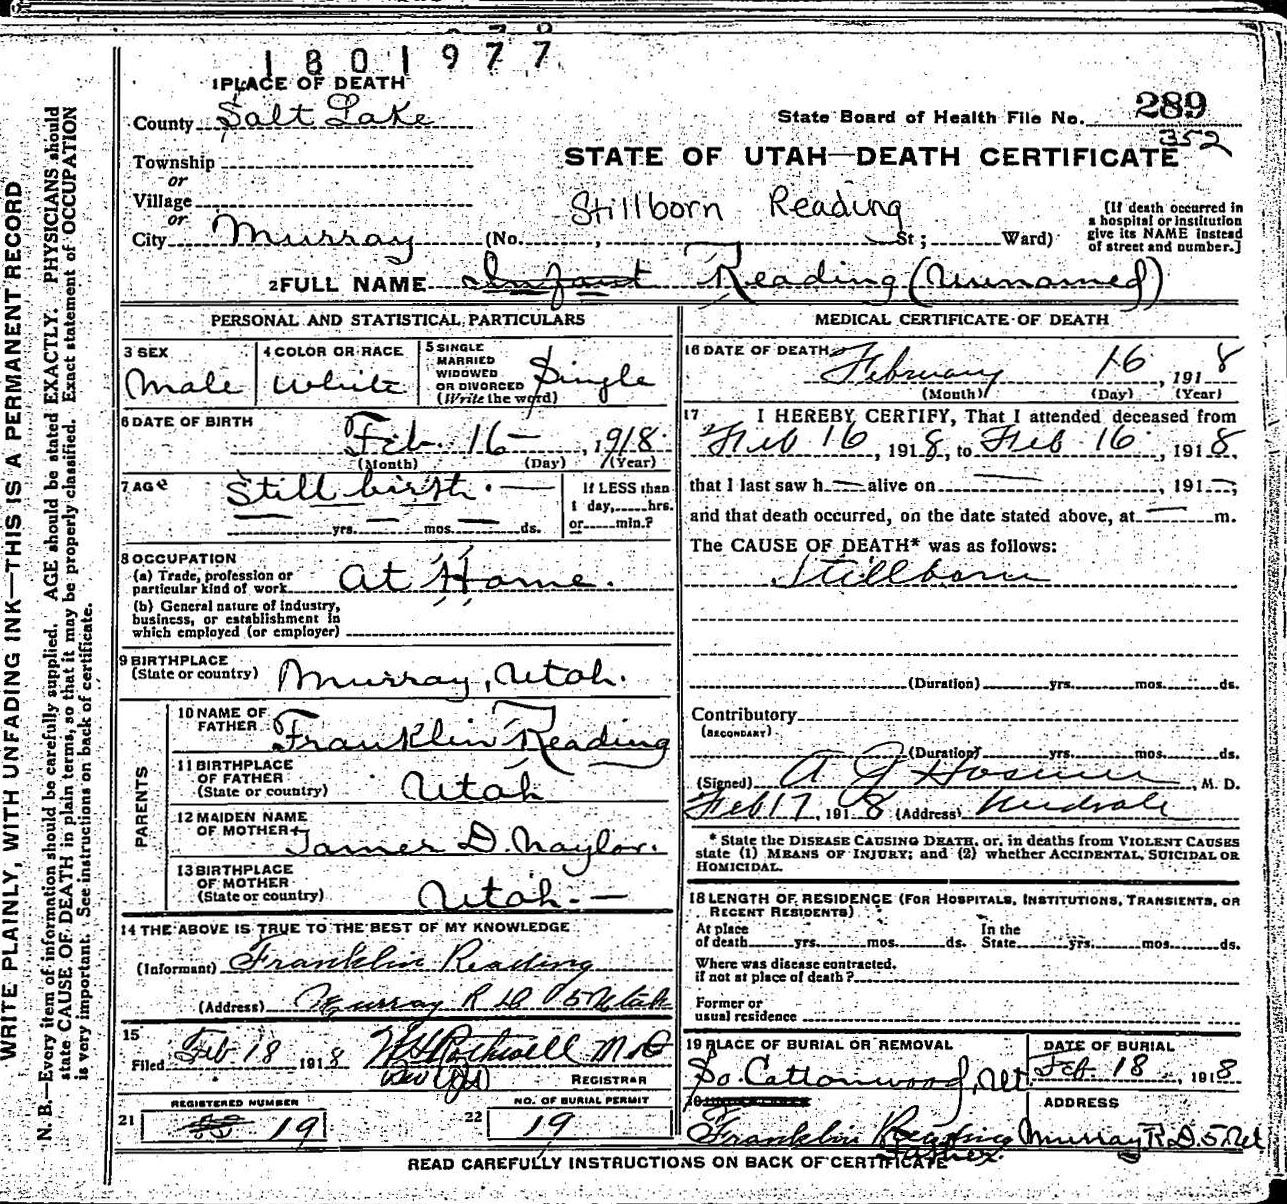 1801977
1 PLACE OF DEATH
County Salt Lake
State Board of Health File No. 289
352
Township
or
STATE OF UTAH—DEATH CERTIFICATE
Village
or
Stillborn Reading
City Murray (No. , St; Ward)
[If death occurred in
a hospital or institution
give its NAME instead
of street and number.]
2 FULL NAME Infant Reading (Unnamed)
PERSONAL AND STATISTICAL PARTICULARS
3 SEX
Male
4 COLOR OR RACE
White
5 SINGLE
MARRIED
WIDOWED
OR DIVORCED
(Write the word)
Single
6 DATE OF BIRTH
Feb. 16 — , 1918.
(Month) (Day) (Year)
7 AGE
Still birth. —
— yrs. — mos. — ds.
If LESS than
1 day, hrs.
or min.?
8 OCCUPATION
(a) Trade, profession or
particular kind of work At Home.
(b) General nature of industry,
business, or establishment in
which employed (or employer)
9 BIRTHPLACE
(State or country) Murray, Utah.
PARENTS
10 NAME OF
FATHER Franklin Reading
11 BIRTHPLACE
OF FATHER
(State or country) Utah
12 MAIDEN NAME
OF MOTHER James D. Naylor.
13 BIRTHPLACE
OF MOTHER
(State or country) Utah. —
14 THE ABOVE IS TRUE TO THE BEST OF MY KNOWLEDGE
(Informant) Franklin Reading
(Address) Murray R D 5 Utah
15
Filed Feb 18 1918 Rothwell M D
REGISTRAR
REGISTERED NUMBER
21 19
NO. OF BURIAL PERMIT
22 19
MEDICAL CERTIFICATE OF DEATH
16 DATE OF DEATH
February 16 , 1918
(Month) (Day) (Year)
17 I HEREBY CERTIFY, That I attended deceased from
Feb 16 , 1918, to Feb 16 , 1918,
that I last saw h — alive on — , 191—,
and that death occurred, on the date stated above, at — m.
The CAUSE OF DEATH* was as follows:
Stillborn
(Duration) yrs. mos. ds.
Contributory
(SECONDARY)
(Duration) yrs. mos. ds.
(Signed) A J Hosmer , M. D.
Feb 17, 1918 (Address) Midvale
* State the DISEASE CAUSING DEATH, or, in deaths from VIOLENT CAUSES
state (1) MEANS OF INJURY; and (2) whether ACCIDENTAL, SUICIDAL OR
HOMICIDAL.
18 LENGTH OF RESIDENCE (FOR HOSPITALS, INSTITUTIONS, TRANSIENTS, OR
RECENT RESIDENTS)
At place
of death yrs. mos. ds.
In the
State yrs. mos. ds.
Where was disease contracted,
if not at place of death?
Former or
usual residence
19 PLACE OF BURIAL OR REMOVAL
So. Cottonwood, Ut
DATE OF BURIAL
Feb 18 , 1918
20
Franklin Reading
Father.
ADDRESS
Murray R D. 5 Ut
READ CAREFULLY INSTRUCTIONS ON BACK OF CERTIFICATE
WRITE PLAINLY, WITH UNFADING INK—THIS IS A PERMANENT RECORD
N. B.—Every item of information should be carefully supplied. AGE should be stated EXACTLY. PHYSICIANS should
state CAUSE OF DEATH in plain terms, so that it may be properly classified. Exact statement of OCCUPATION
is very important. See instructions on back of certificate.